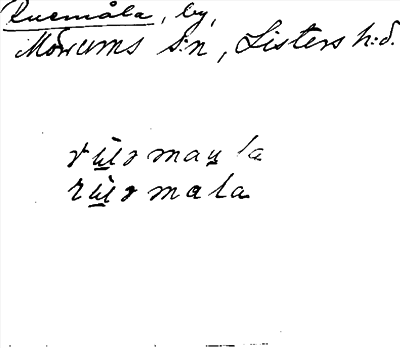 Ruemåla, by,
Mörrums s:n, Listers h:d.
rùəmau̯la
rùəmala